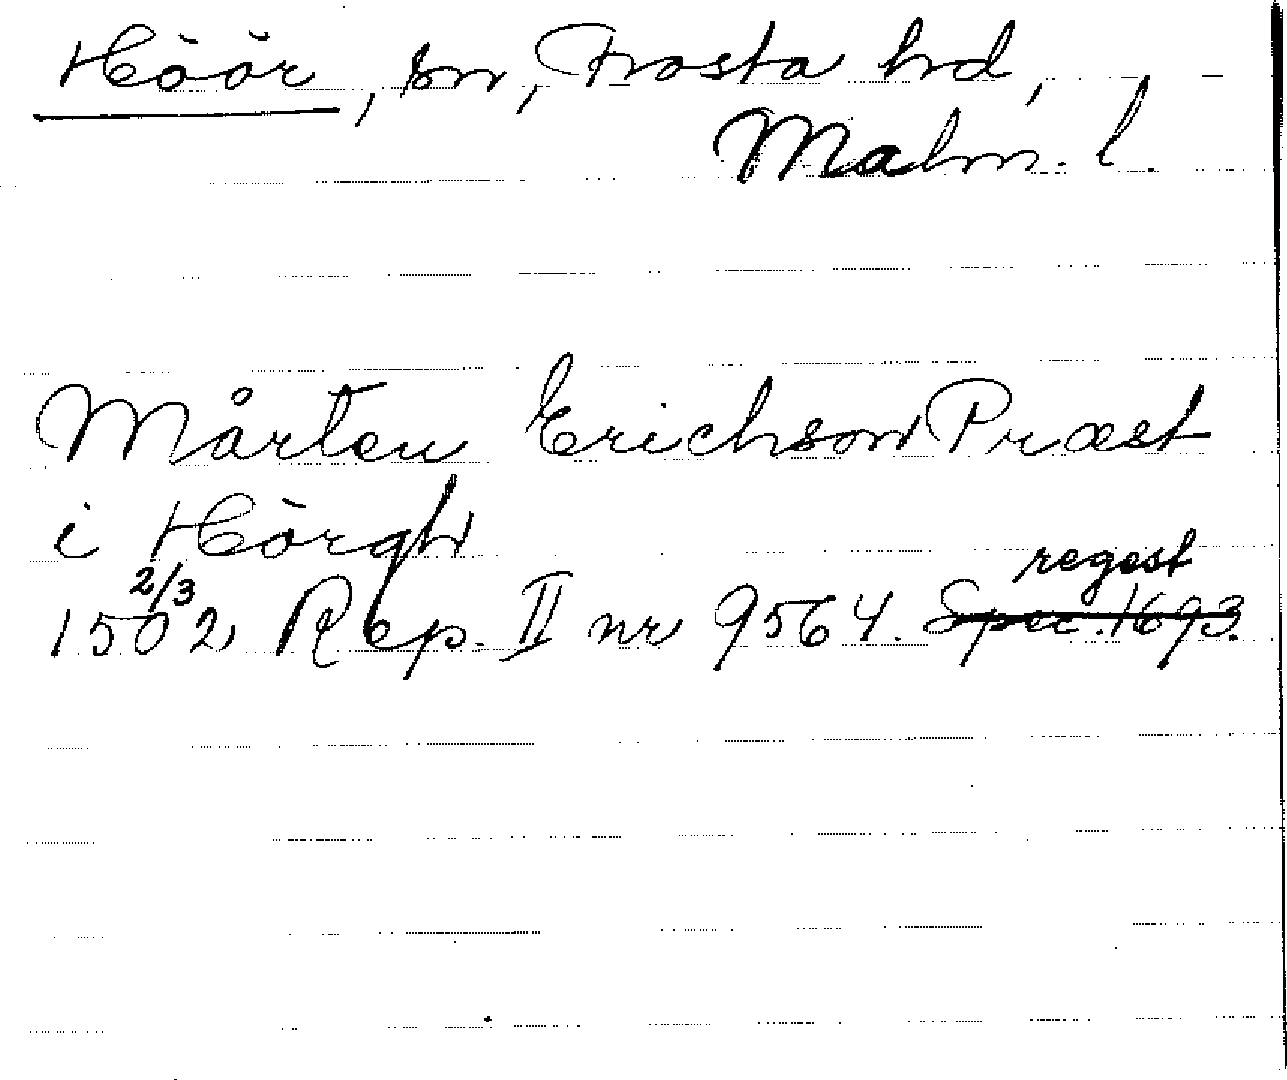 Höör, sn, Frosta hrd,
Malm. l.
Mårten Erichson Præst
i Hörgh
2/3 regest
1502 Rep. II nr 9564. Spec. 1693.